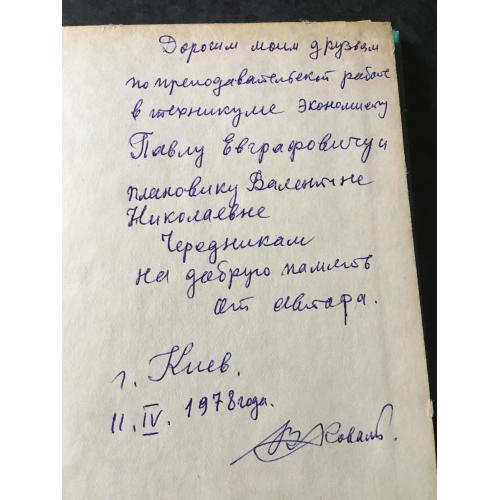 Дорогим моим друзьям
по преподавательской работе
в техникуме экономисту
Павлу Евграфовичу и
плановику Валентине
Николаевне
Чередникам
на добрую память
от автора.
г. Киев.
11.IV. 1978 года.
В Коваль.